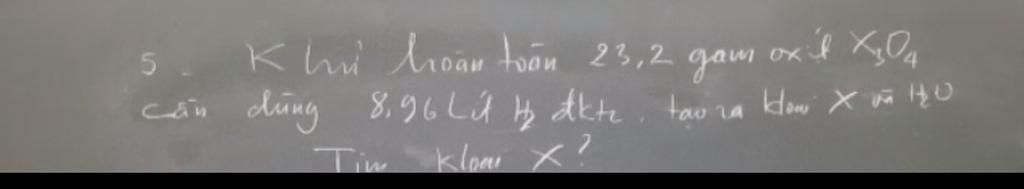 5 - Khử hoàn toàn 23,2 gam oxit X₃O₄
cần dùng 8,96 Lít H₂ đktc. tạo ra kloại X và H₂O
Tìm kloại X?